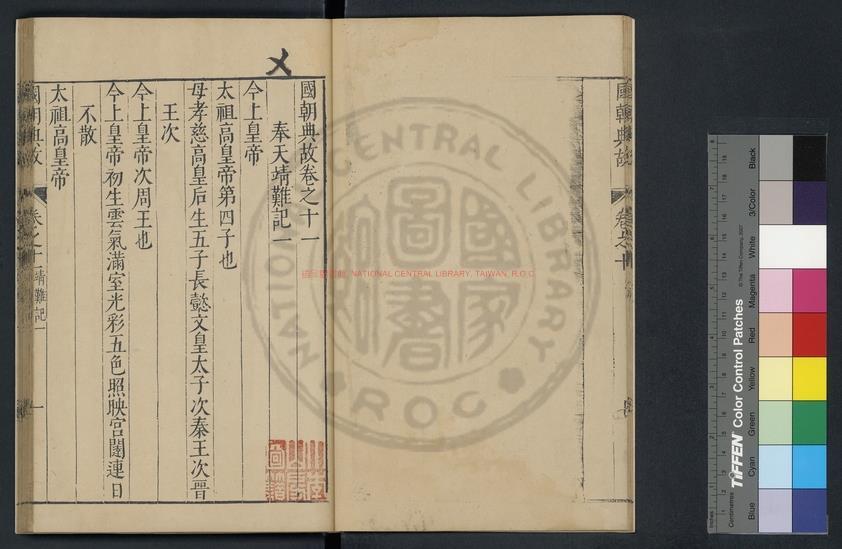 國朝典故卷之十
乂
國朝典故卷之十一
奉天靖難記一
今上皇帝
太祖高皇帝第四子也
母孝慈高皇后生五子長懿文皇太子次秦王次晉
王次
今上皇帝次周王也
今上皇帝初生雲氣滿室光彩五色照映宮闥連日
不散
太祖高皇帝
國朝典故 卷之十一 靖難記一 一
國家圖書館 NATIONAL CENTRAL LIBRARY, TAIWAN, R.O.C
NATIONAL CENTRAL LIBRARY
國家圖書
ROC
TIFFEN Color Control Patches
© The Tiffen Company, 2007
Centimetres
Inches
Blue
Cyan
Green
Yellow
Red
Magenta
White
3/Color
Black